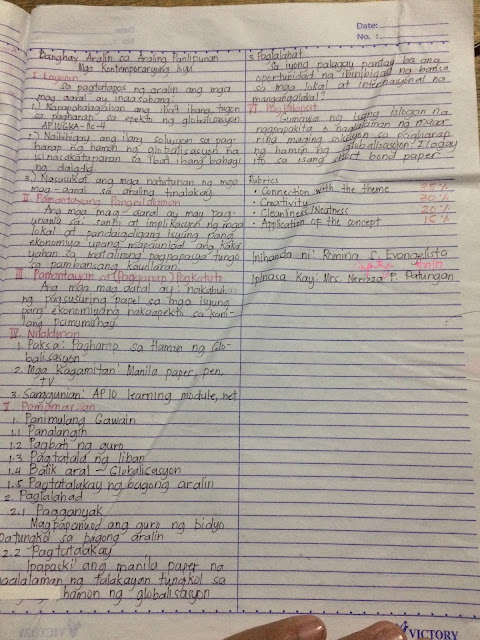 Date:
No. :
Banghay Aralin sa Araling Panlipunan
Mga Kontemporaryung Isyu
I Layunin
Sa pagtatapos ng aralin ang mga
mag aaral ay inaasahang:
1.) Napahahalagahan ang iba't ibang tugon
sa pagharap sa epekto ng globalisasyon
2.) Natutukoy ang ilang solusyon sa pag-
harap ng hamon ng globalisasyon na
isinasakatuparan sa iba't ibang bahagi
ng daigdig
3.) Nasusukat ang mga natutunan ng mga
mag-aaral sa araling tinalakay.
II Pamantayang Pangnilalaman
Ang mga mag-aaral ay may pag-
unawa sa: sanhi at implikasyon ng mga
lokal at pandaigdigang isyung pang
ekonomiya upang mapaunlad ang kaka
yahan sa matalinong pagpapasya tungo
sa pambansang kaunlaran.
III Pamantayan sa (Pagganap) Pagkatuto
Ang mga mag aaral ay: nakabubuo
ng pagsusuring papel sa mga isyung
pang ekonomiyang nakaapekto sa kani-
lang pamumuhay.
IV. Nilalaman
1. Paksa: Pagharap sa Hamon ng Glo-
balisasyon
2. Mga Kagamitan: Manila paper, pen,
TV
3. Sanggunian: AP10 learning module, net
V Pamamaraan
1. Panimulang Gawain
1.1 Panalangin
1.2 Pagbati ng guro
1.3 Pagtatala ng liban
1.4 Balik aral - Globalisasyon
1.5 Pagtatalakay ng bagong aralin
2. Paglalahad
2.1 Pagganyak
Magpapanuod ang guro ng bidyo
patungkol sa bagong aralin
2.2 Pagtatalakay
Ipapaskil ang manila paper na
naglalaman ng talakayan tungkol sa
hamon ng globalisasyon
3. Paglalahat
Sa iyong palagay pantay ba ang
oportunidad na ibinibigay ng bansa
sa mga lokal at internasional na
mangangalakal?
Gumawa ng isang islogan na
nagpapakita o naglalaman ng maaa-
ring maging solusyon sa pagharap
ng hamon ng globalisasyon. Ilagay
ito sa isang short bond paper
Rubrics
• Connection with the theme 35%
• Creativity 30%
• Cleanliness/Neatness 20%
• Application of the concept 15%
Inihanda ni: Romina C. Evangelista
Ipinasa Kay: Mrs. Nerissa P. Patungan
VICTORY
VICTORY